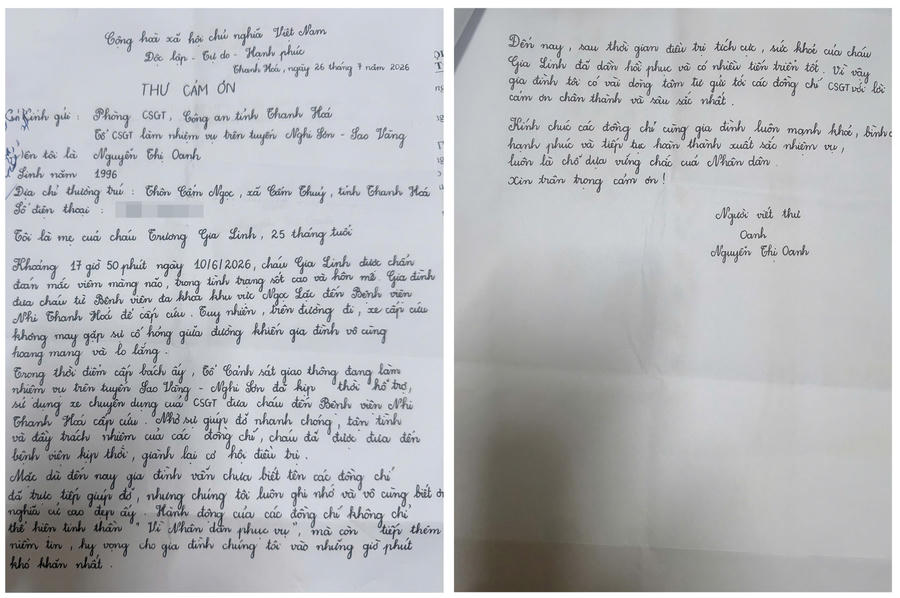 Cộng hoà xã hội chủ nghĩa Việt Nam
Độc lập - Tự do - Hạnh phúc
Thanh Hoá, ngày 26 tháng 7 năm 2026
THƯ CẢM ƠN
Kính gửi : Phòng CSGT, Công an tỉnh Thanh Hoá
Tổ CSGT làm nhiệm vụ trên tuyến Nghi Sơn - Sao Vàng
Tên tôi là Nguyễn Thị Oanh
Sinh năm 1996
Địa chỉ thường trú : Thôn Cẩm Ngọc, xã Cẩm Thuỷ, tỉnh Thanh Hoá
Số điện thoại :
Tôi là mẹ của cháu Trương Gia Linh, 25 tháng tuổi
Khoảng 17 giờ 50 phút ngày 10/6/2026, cháu Gia Linh được chẩn
đoán mắc viêm màng não, trong tình trạng sốt cao và hôn mê. Gia đình
đưa cháu từ Bệnh viện đa khoa khu vực Ngọc Lặc đến Bệnh viện
Nhi Thanh Hoá để cấp cứu. Tuy nhiên, trên đường đi, xe cấp cứu
không may gặp sự cố hỏng giữa đường khiến gia đình vô cùng
hoang mang và lo lắng.
Trong thời điểm cấp bách ấy, Tổ Cảnh sát giao thông đang làm
nhiệm vụ trên tuyến Sao Vàng - Nghi Sơn đã kịp thời hỗ trợ,
sử dụng xe chuyên dụng của CSGT đưa cháu đến Bệnh viện Nhi
Thanh Hoá cấp cứu. Nhờ sự giúp đỡ nhanh chóng, tận tình
và đầy trách nhiệm của các đồng chí, cháu đã được đưa đến
bệnh viện kịp thời, giành lại cơ hội điều trị.
Mặc dù đến nay gia đình vẫn chưa biết tên các đồng chí
đã trực tiếp giúp đỡ, nhưng chúng tôi luôn ghi nhớ và vô cùng biết ơn
nghĩa cử cao đẹp ấy. Hành động của các đồng chí không chỉ
thể hiện tinh thần "Vì Nhân dân phục vụ", mà còn tiếp thêm
niềm tin, hy vọng cho gia đình chúng tôi vào những giờ phút
khó khăn nhất.
Đến nay, sau thời gian điều trị tích cực, sức khoẻ của cháu
Gia Linh đã dần hồi phục và có nhiều tiến triển tốt. Vì vậy
gia đình tôi có vài dòng tâm tư gửi tới các đồng chí CSGT với lời
cảm ơn chân thành và sâu sắc nhất.
Kính chúc các đồng chí cùng gia đình luôn mạnh khoẻ, bình
hạnh phúc và tiếp tục hoàn thành xuất sắc nhiệm vụ,
luôn là chỗ dựa vững chắc của Nhân dân.
Xin trân trọng cảm ơn!
Người viết thư
Oanh
Nguyễn Thị Oanh